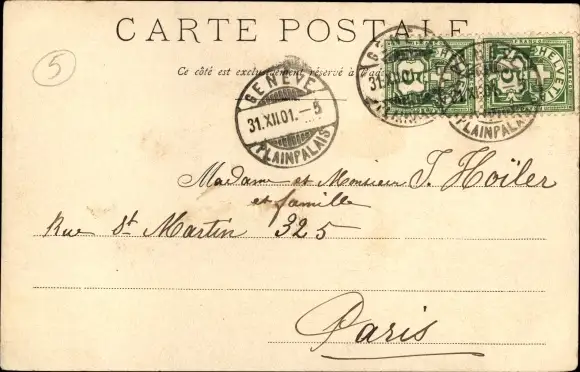 CARTE POSTALE
Ce côté est exclusivement réservé à l'adresse
5
GENÈVE
31.XII.01.-5
PLAINPALAIS
GENÈVE
31.XII.01
PLAINPALAIS
FRANCO
HELVETIA
5
PLAINPALAIS
Madame et Monsieur J. Hoïler
et famille
Rue St Martin 325
Paris